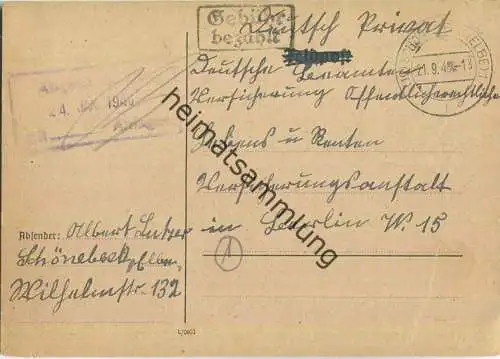 Gebühr
bezahlt
Deutsch Privat
Feldpost
21.9.45-13
Deutsche Beamten
Versicherung Öffentlichrechtliche
Lebens u Renten
Versicherungsanstalt
in Berlin W. 15
24.
Absender: Albert
Schönebeck/Elbe
Wilhelmstr. 132
heimatsammlung